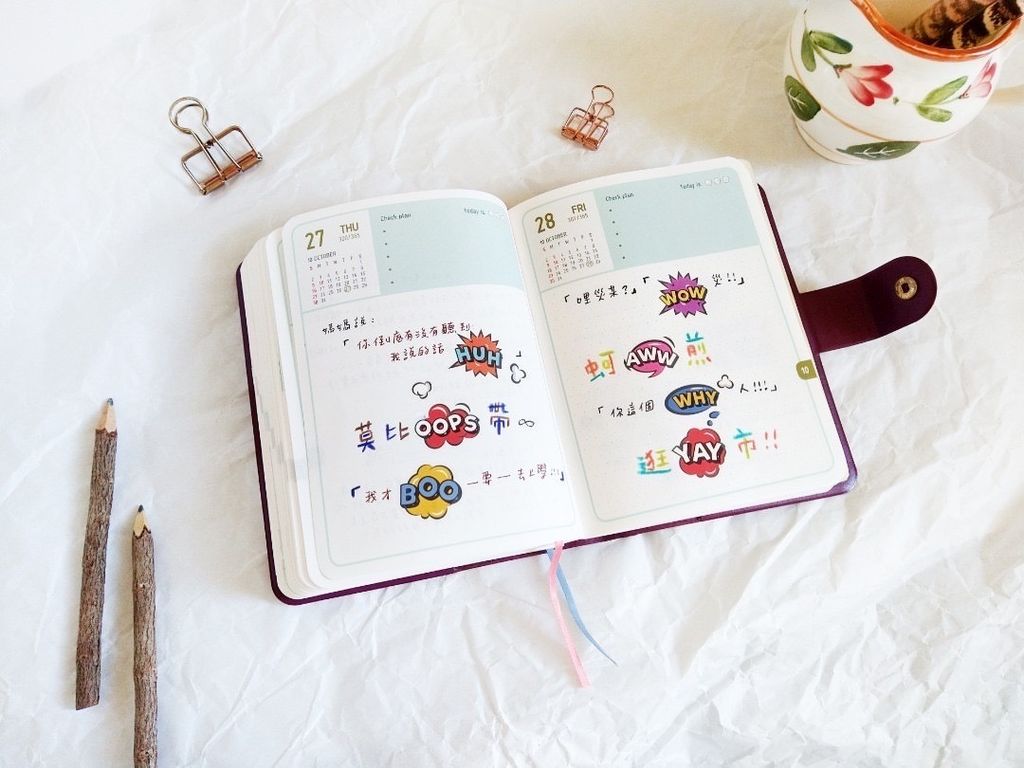 27 THU
Check plan
Today is.
10 OCTOBER
S M T W T F S
媽媽說：
「你到底有沒有聽到
我說的話 HUH 」
莫比 OOPS 帶
「我才 BOO 要去上學!!」
28 FRI
301/365
Check plan
Today is.
10 OCTOBER
S M T W T F S
「哩災某?」「 WOW 災!!」
蚵 AWW 煎
「你這個 WHY 人!!!」
逛 YAY 市!!
10